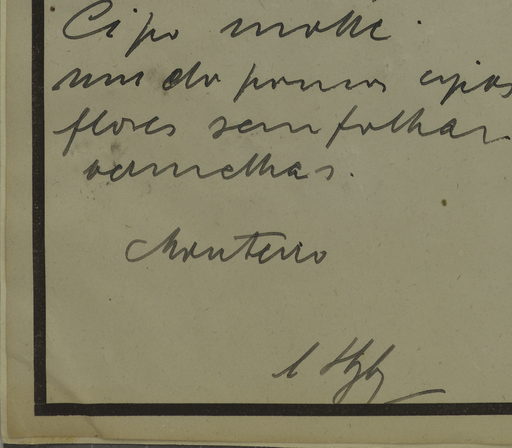 Cipo molle.
um do poucos cipos
flores sem folhas
vermelhas.
Monteiro